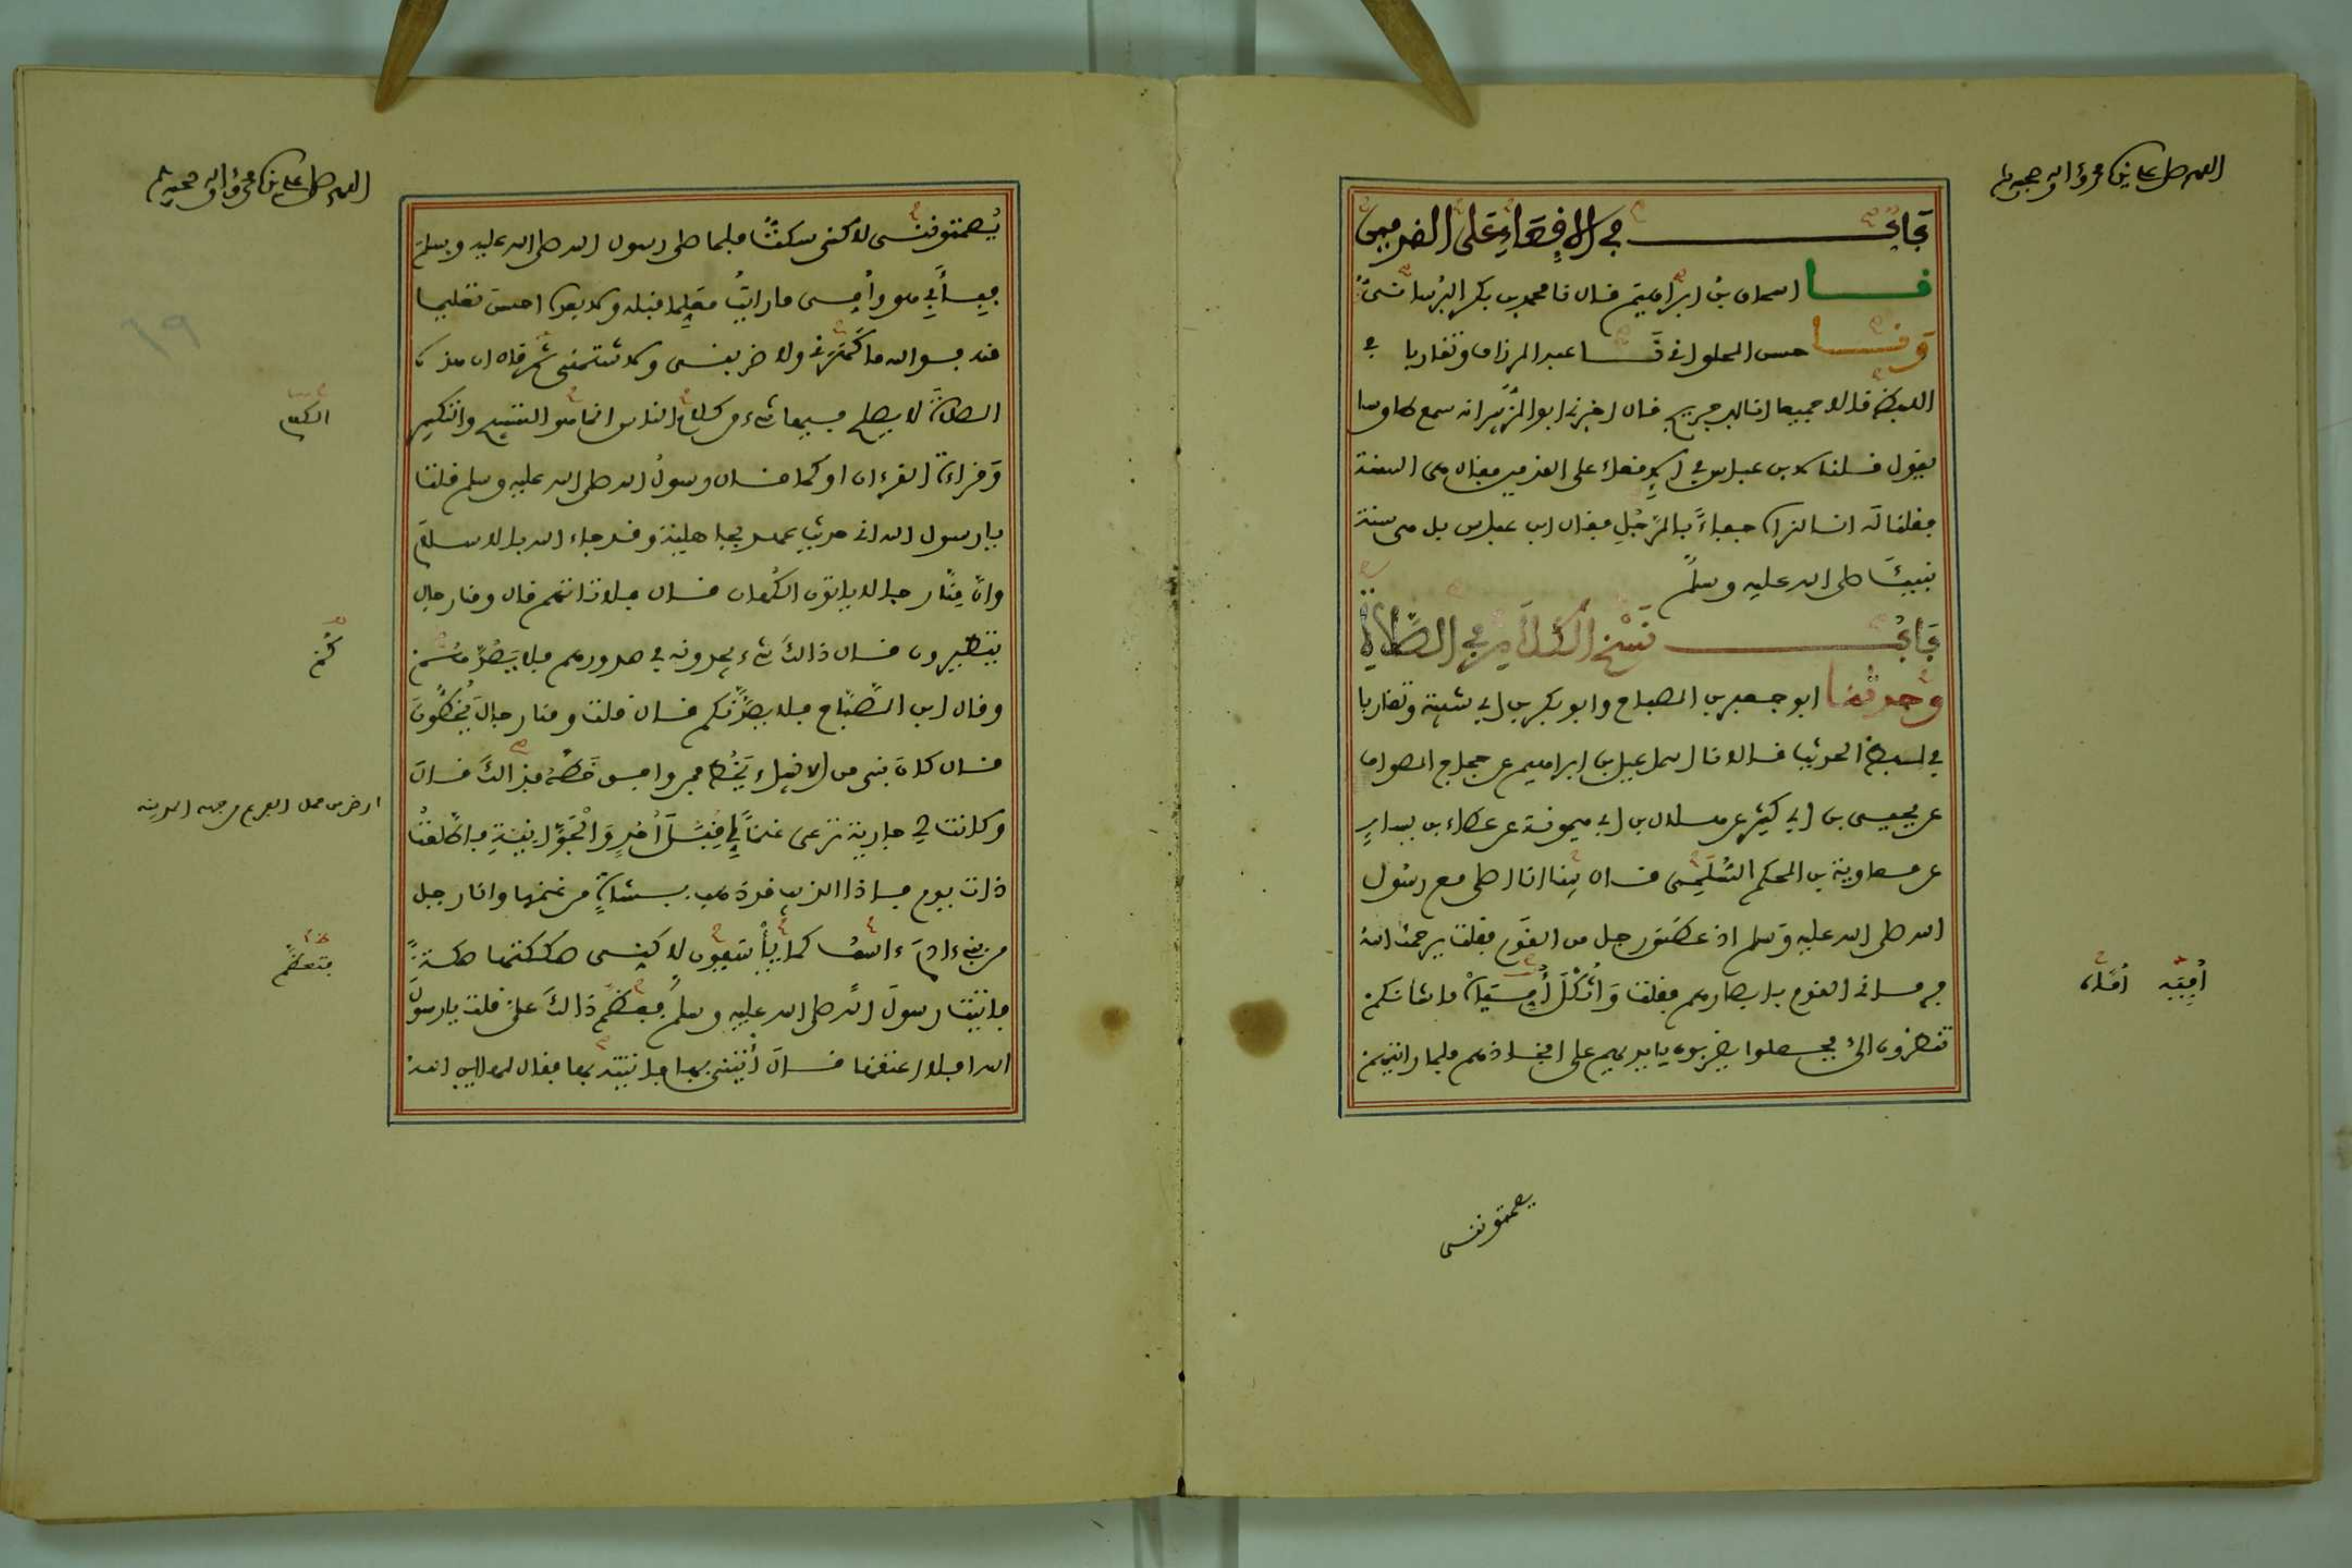 اللهم صل على سيدنا محمد وءاله وصحبه وسلم
بَابُ في الإقعاءِ عَلى القدمين
نا اسحاق بنُ ابراهيم قال نا محمد بن بكر البُرسانيُّ
وَنا حسن الحلواني نا عبد الرزاق وتقاربا في
اللفظِ قالا جميعا انا ابن جريج قال اخبرني ابو الزُّبير انه سمع طاوسا
يقول قلنا لابن عباس في الإقعاء على القدمين فقال هي السنة
فقلنا لَه انا لنراه جفاءً بالرَّجُلِ فقال ابن عباس بل هي سنة
نبيِّنَا صلى الله عليه وسلم
بَابُ نَسْخ الكَلَامِ في الصَّلَاةِ
وحدثنا ابو جعفر بن الصباح وابو بكر بن ابي شيبة وتقاربا
في لفظ الحديث قالا نا اسماعيل بن ابراهيم عن حجاج الصواف
عن يحيى بن ابي كثير عن هلال بن ابي ميمونة عن عطاء بن يسارٍ
عن معاوية بن الحكم السُّلَمِي قال بينا انا اصلى مع رسُول
الله صلى الله عليه وسلم اذ عطس رجل من القوم فقلت يرحمك اللهُ
فرماني القوم بابصارهم فقلت وَاثُكْلَ أُمِّيَاهْ ما شأنكم
تنظرون اليَّ فجعلوا يضربون بايديهم على افخاذهم فلما رايتهم
أُمِّيَه أمَّاه
يصمتوننى
اللهم صل على سيدنا محمد وءاله وصحبه وسلم
٦٩
يُصمتوننى لاكنى سكتُّ فلما صلى رسول الله صلى الله عليه وسلم
فبِأَبِي هو وأُمِى ما رايتُ معَلِّما قبله ولا بعده احسن تعليما
منه فوالله ما كَهَرَني ولا ضربنى ولا شتمنى ثم قال ان هذه
الصلاةَ لا يصلح فيها شيء من كلام الناس انما هو التسبيح والتكبير
وَقراءة القرءان او كما قال رسولُ الله صلى الله عليه وسلم قلت
يا رسول الله اني حديث عهد بجاهلية وقد جاء الله بالاسلام
وانَّ مِنَّا رجالا ياتون الكُهان قال فلا تاتهم قال ومنا رجال
يتطيرون قال ذالكَ شيء يجدونه في صدورهم فلا يَصُدَّهُمْ
وقال ابن الصَّبَّاح فلا يصُدَّنكم قال قلت ومنا رجالٌ يَخُطُّونَ
قال كان نبى من الانبياء يَخُط فمن وافق خَطَّهُ فذالكَ قالَ
وكانت لي جارية ترعى غنماً لي قِبَلَ أُحُدٍ وَالْجَوَّانِيَّةِ فاطَّلعْتُ
ذات يوم فاذا الذيب قد ذهب بشاةٍ من غنمها وانا رجل
من بني ءادَمَ ءاسَفُ كما يأْسَفُون لاكنى صككتها صكةً
فاتيت رسولَ الله صلى الله عليه وسلم فعظَّم ذالكَ علىَّ قلت يا رسولَ
الله افلا اعتقها قالَ ائْتِنى بها فاتيته بها فقال لها اين اللهُ
الكلام
كُمْ
ارض من عمل الفرع من جهة المدينة
فتعظَّمَ